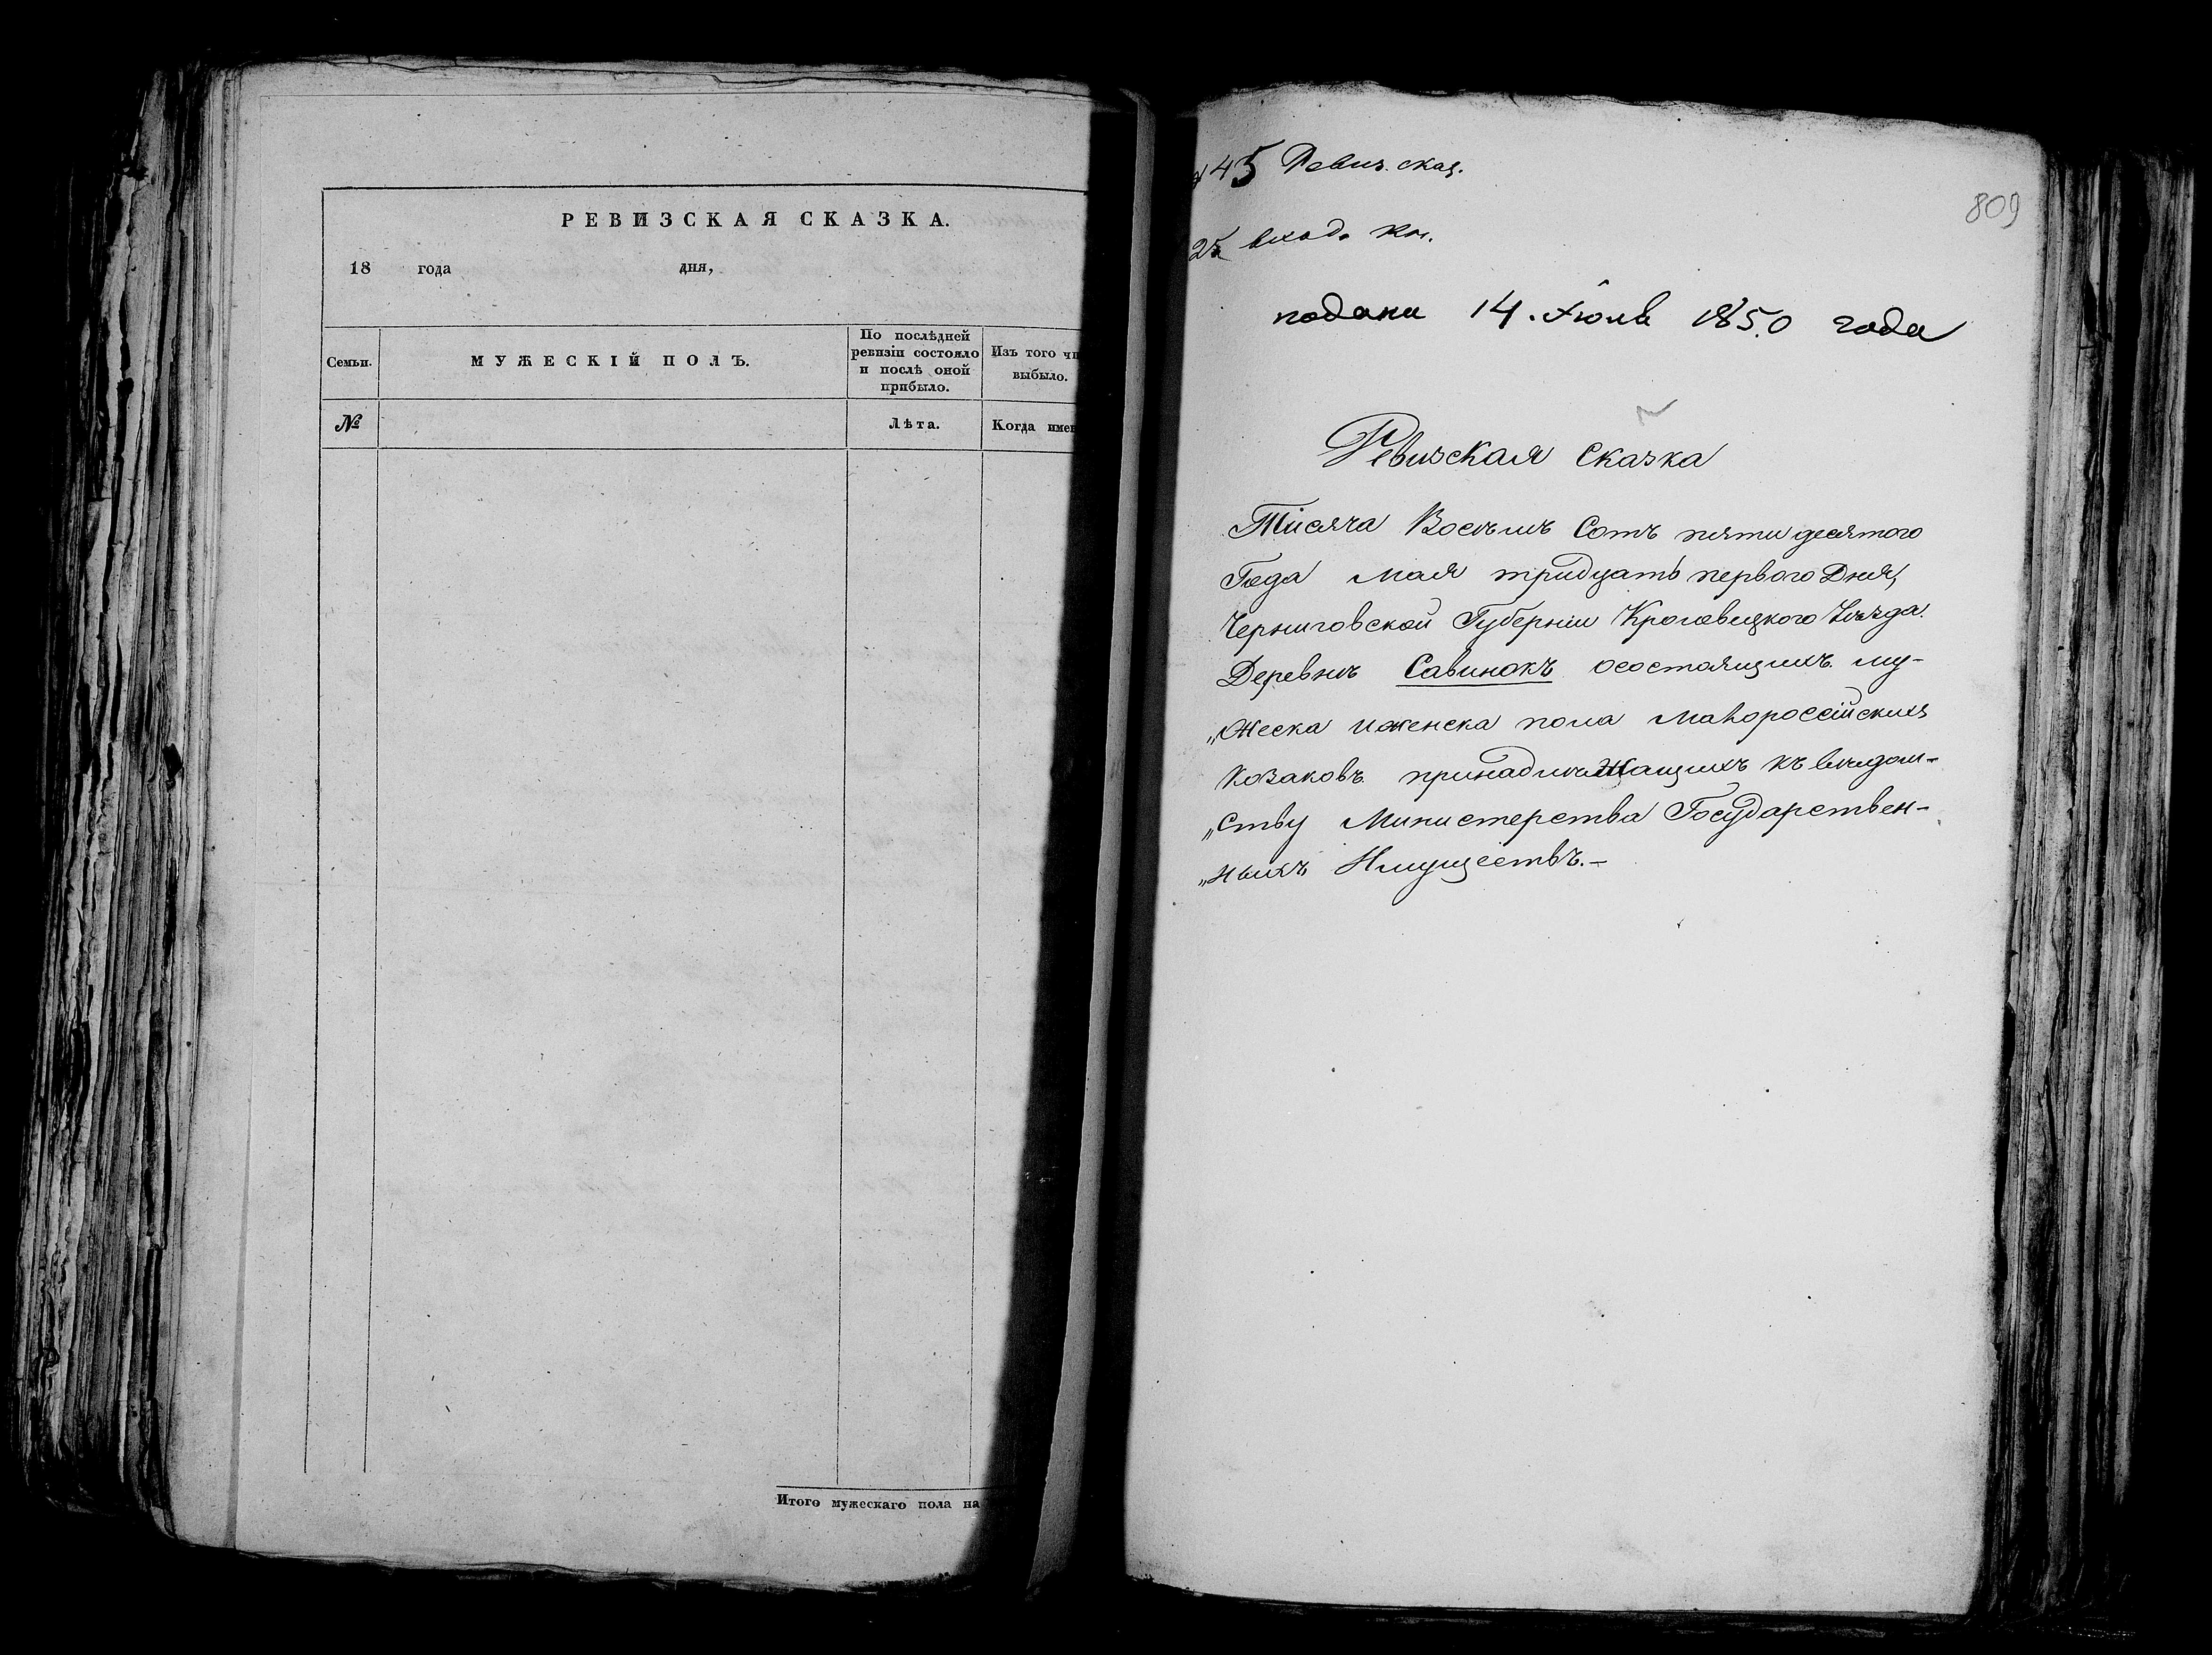 РЕВИЗСКАЯ СКАЗКА.
18 года дня,
Семьи.
МУЖЕСКІЙ ПОЛЪ.
По послѣдней
ревизіи состояло
и послѣ оной
прибыло.
Изъ того чи
выбыло.
№
Лѣта.
Когда имен
Итого мужескаго пола на
45 Ревиз. сказ.
25 вход. кн.
809
подана 14. Іюля 1850 года
Ревизская Сказка
Тисяча Восѣмъ Сотъ пятидесятого
Года Мая тридцать первого Дня,
Черниговской Губерніи Кролевецкого Уѣзда.
Деревнѣ Савинокъ осостоящихъ му-
„жеска иженска пола Малороссійскихъ
Козаковъ принадлѣжащихъ къ вѣдом-
„ству Министерства Государствен-
„ныхъ Имуществъ.-